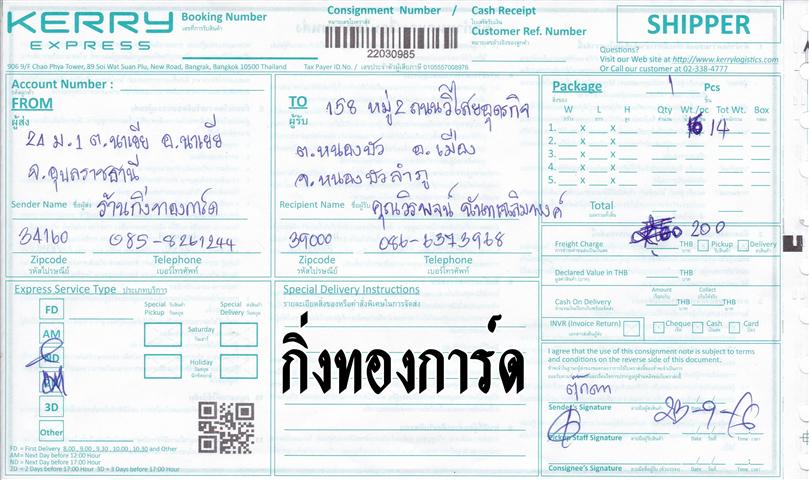 KERRY
EXPRESS
Booking Number
เลขที่การรับสินค้า
Consignment Number /
หมายเลขใบตราส่ง
22030985
Cash Receipt
ใบเสร็จรับเงิน
Customer Ref. Number
หมายเลขอ้างอิงของลูกค้า
SHIPPER
Questions?
Visit our Web site at http://www.kerrylogistics.com
Or Call our customer at 02-338-4777
906 9/F Chao Phya Tower, 89 Soi Wat Suan Plu, New Road, Bangrak, Bangkok 10500 Thailand
Tax Payer ID.No. / เลขประจำตัวผู้เสียภาษี 0105557008976
Account Number :
FROM
ผู้ส่ง
24 ม.1 ต.นาเยีย อ.นาเยีย
จ.อุบลราชธานี
Sender Name ชื่อผู้ส่ง ร้านกิ่งทองการ์ด
34160 085-8261244
Zipcode Telephone
รหัสไปรษณีย์ เบอร์โทรศัพท์
TO
ผู้รับ
158 หมู่2 ถนนวิไสยอุดรกิจ
ต.หนองบัว อ.เมือง
จ.หนองบัวลำภู
Recipient Name ชื่อผู้รับ คุณวิรพจน์
39000 086-6373968
Zipcode Telephone
รหัสไปรษณีย์ เบอร์โทรศัพท์
Package 1 Pcs
สิ่งของ ชิ้น
W L H Qty Wt/pc Tot Wt. Box
1. X X 14
2. X X
3. X X
4. X X
5. X X
Total
Freight Charge 200 THB Pickup Delivery
Declared Value in THB
Cash On Delivery THB THB
INVR (Invoice Return) Cheque Cash Card
Express Service Type ประเภทบริการ
FD
AM
3D
Other
Special Pickup
Special Delivery
Saturday
วันเสาร์
Holiday
วันหยุด
FD = First Delivery 8.00 , 9.00 , 9.30 , 10.00 , 10.30 and Other
AM= Next Day before 12:00 Hour
ND= Next Day before 17:00 Hour
2D = 2 Days before 17:00 Hour 3D = 3 Days before 17:00 Hour
Special Delivery Instructions
รายละเอียดสิ่งของหรือคำสั่งพิเศษในการจัดส่ง
กิ่งทองการ์ด
I agree that the use of this consignment note is subject to terms
and conditions on the reverse side of this document.
ตุ๊กตา
Sender's Signature
Pickup Staff Signature
Consignee's Signature